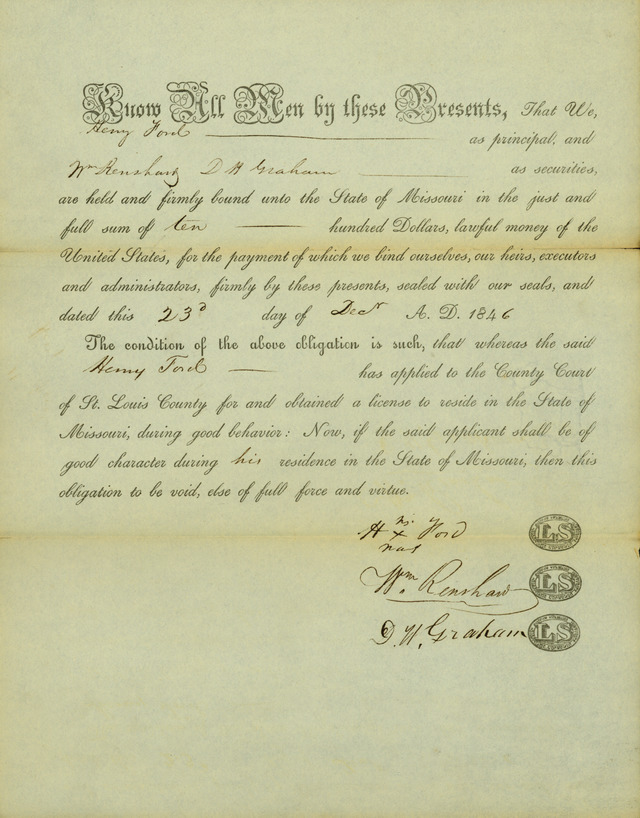 Know All Men by these Presents, That We,
Henry Ford as principal, and
Wm Renshaw D H Graham as securities,
are held and firmly bound unto the State of Missouri in the just and
full sum of ten hundred Dollars, lawful money of the
United States, for the payment of which we bind ourselves, our heirs, executors
and administrators, firmly by these presents, sealed with our seals, and
dated this 23d day of Decr A. D. 1846
The condition of the above obligation is such, that whereas the said
Henry Ford has applied to the County Court
of St. Louis County for and obtained a license to reside in the State of
Missouri, during good behavior: Now, if the said applicant shall be of
good character during his residence in the State of Missouri, then this
obligation to be void, else of full force and virtue.
his
H x Ford LS
Wm. Renshaw LS
D. H. Graham LS